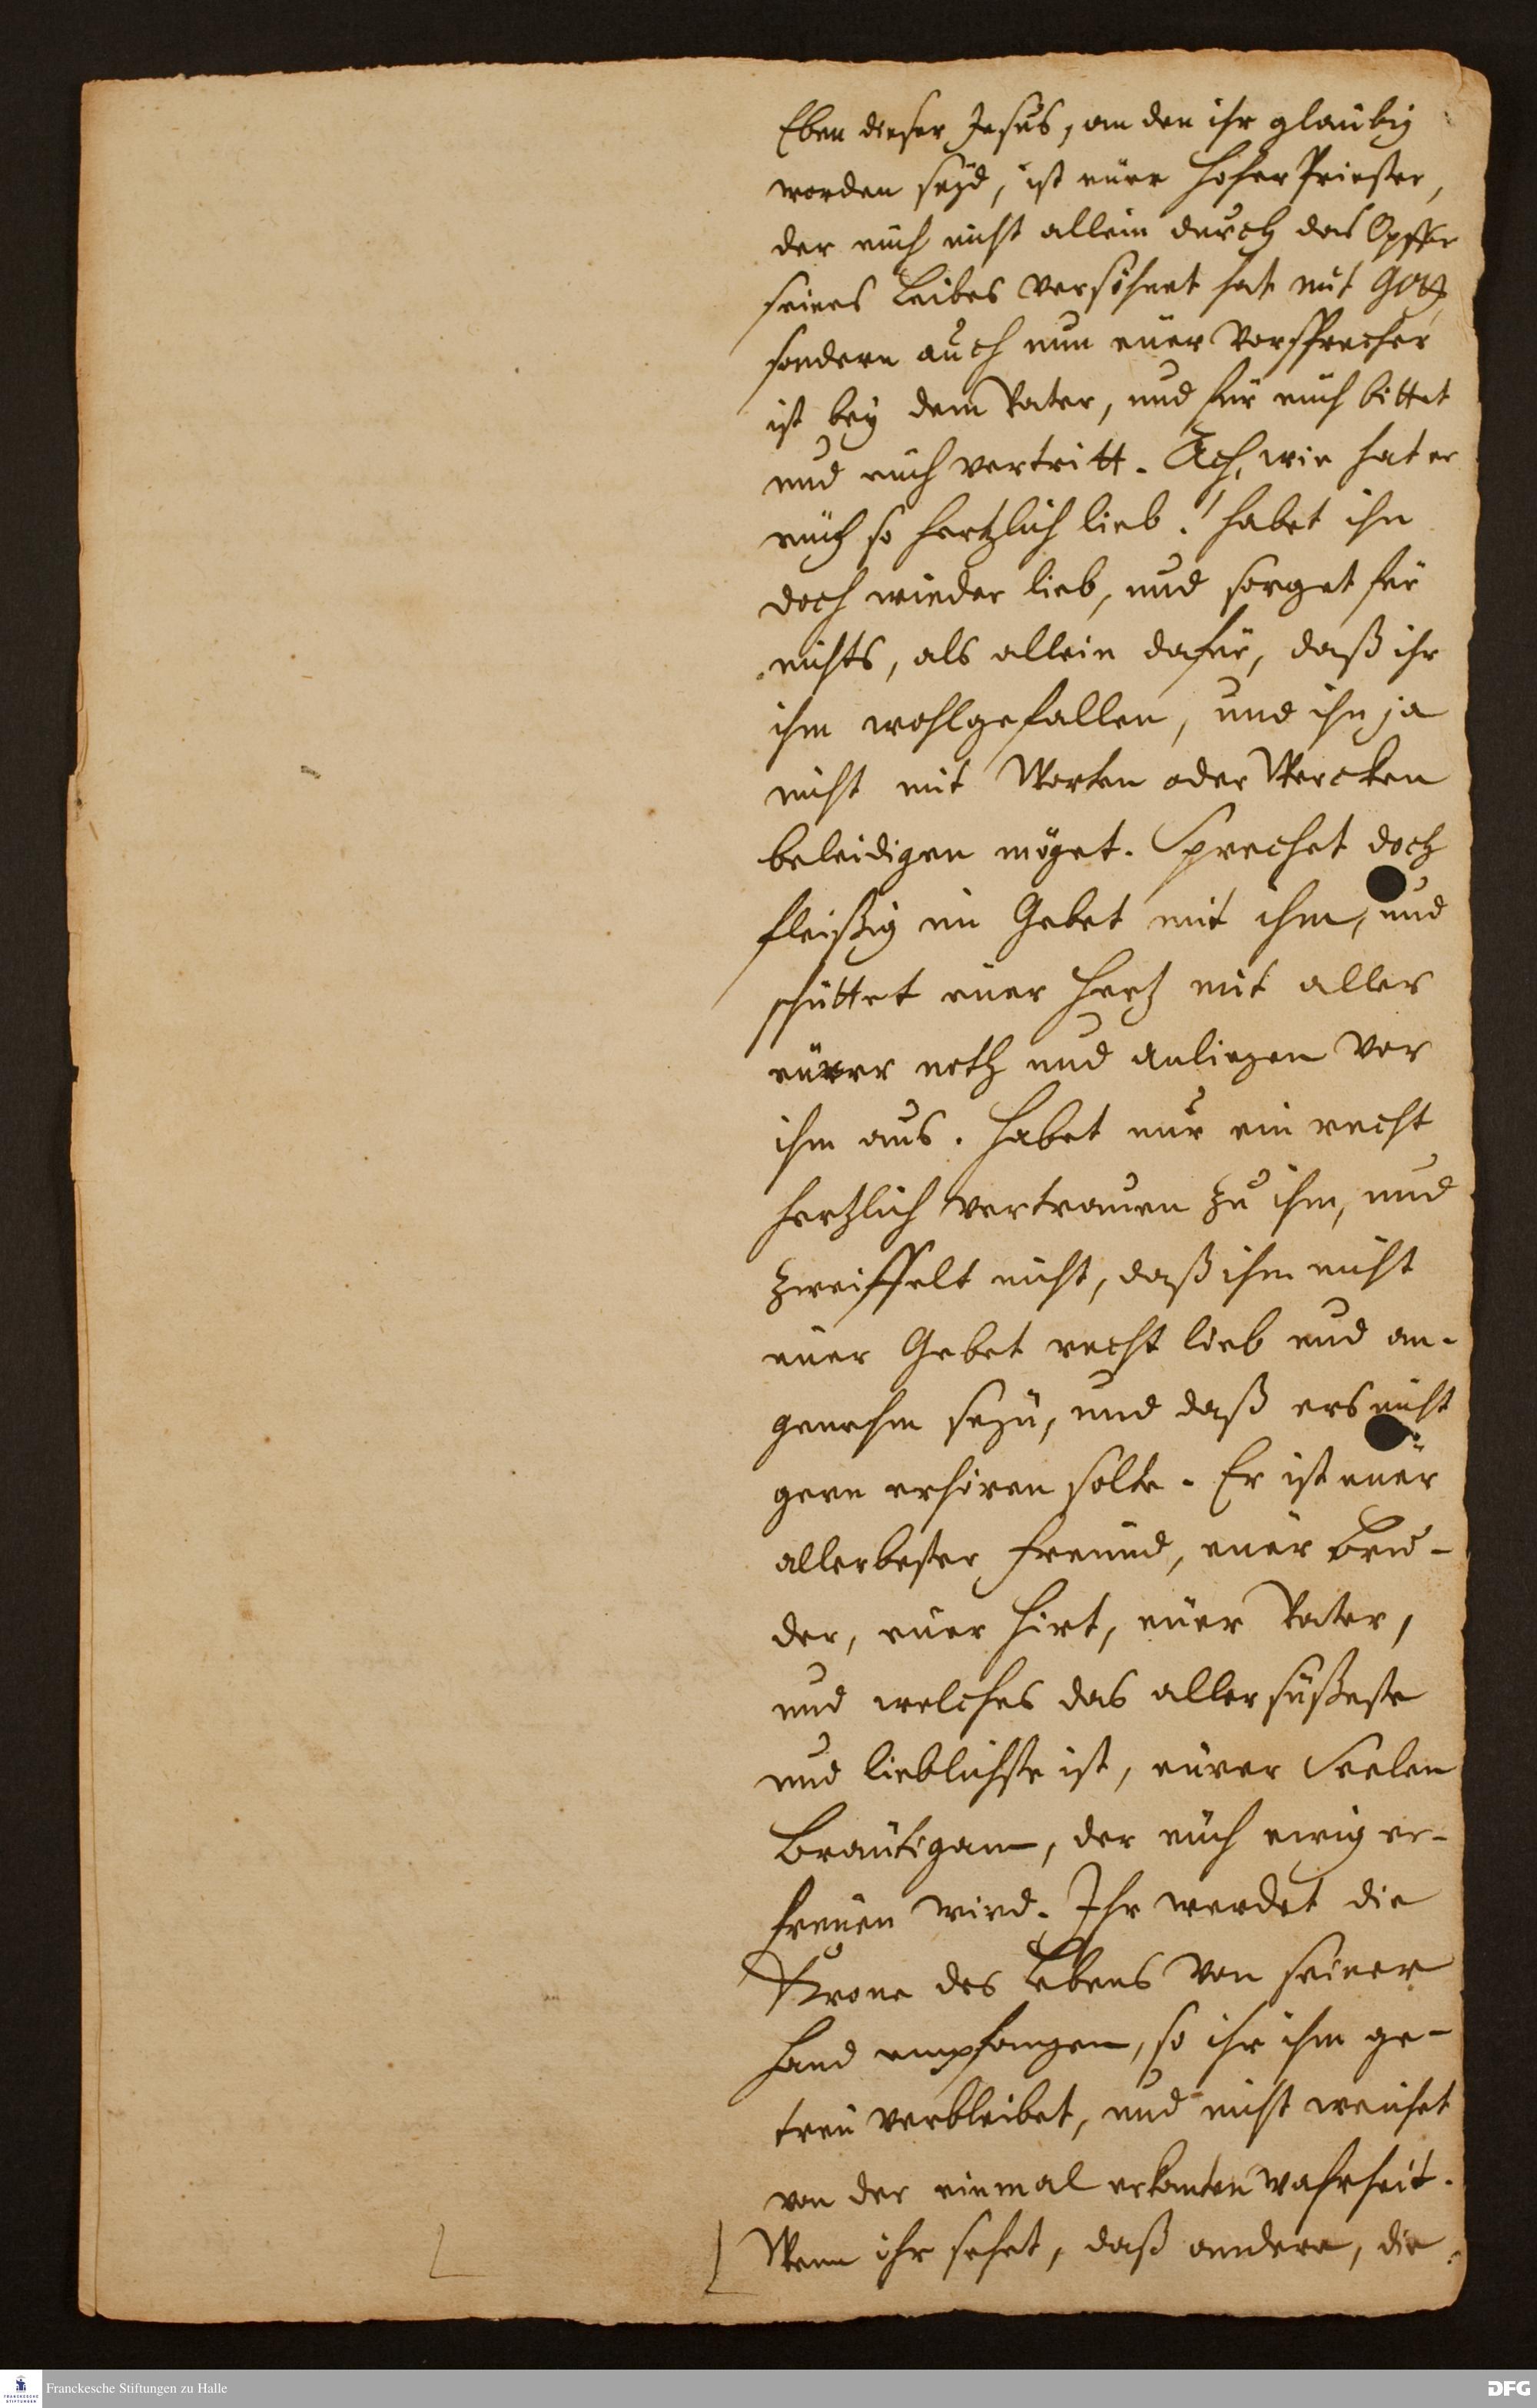 Eben dieser Jesus, an den ihr glaubig
worden seyd, ist eüer Hoher Priester,
der eüch nicht allein durch das Opffer
seines Leibes versöhnet hat mit Gott,
sondern auch nun eüer Vorsprecher
ist bey dem Vater, und für eüch bittet
und eüch vertritt. Ach, wie hat er
eüch so hertzlich lieb! habet ihn
doch wieder lieb, und sorget für
nichts, als allein dafür, daß ihr
ihm wohlgefallen, und ihn ja
nicht mit Worten oder Wercken
beleidigen möget. Sprechet doch
fleißig im Gebet mit ihm, und
schüttet eüer Hertz mit aller
eürer noth und anliegen vor
ihm aus. Habet nur ein recht
hertzlich vertrauen zu ihm, und
zweiffelt nicht, daß ihm nicht
eüer Gebet recht lieb und an-
genehm seyn, und daß ers nicht
gern erhören solte. Er ist eüer
allerbester Freund, eüer Bru-
der, eüer Hirt, eüer Vater,
und welches das allersüßeste
und lieblichste ist, eürer Seelen
Bräutigam, der eüch ewig er-
freuen wird. Ihr werdet die
Krone des Lebens von seiner
Hand empfangen, so ihr ihm ge-
treü verbleibet, und nicht weichet
von der einmal erkanten Wahrheit.
Wenn ihr sehet, daß andere, die
Franckesche Stiftungen zu Halle
DFG